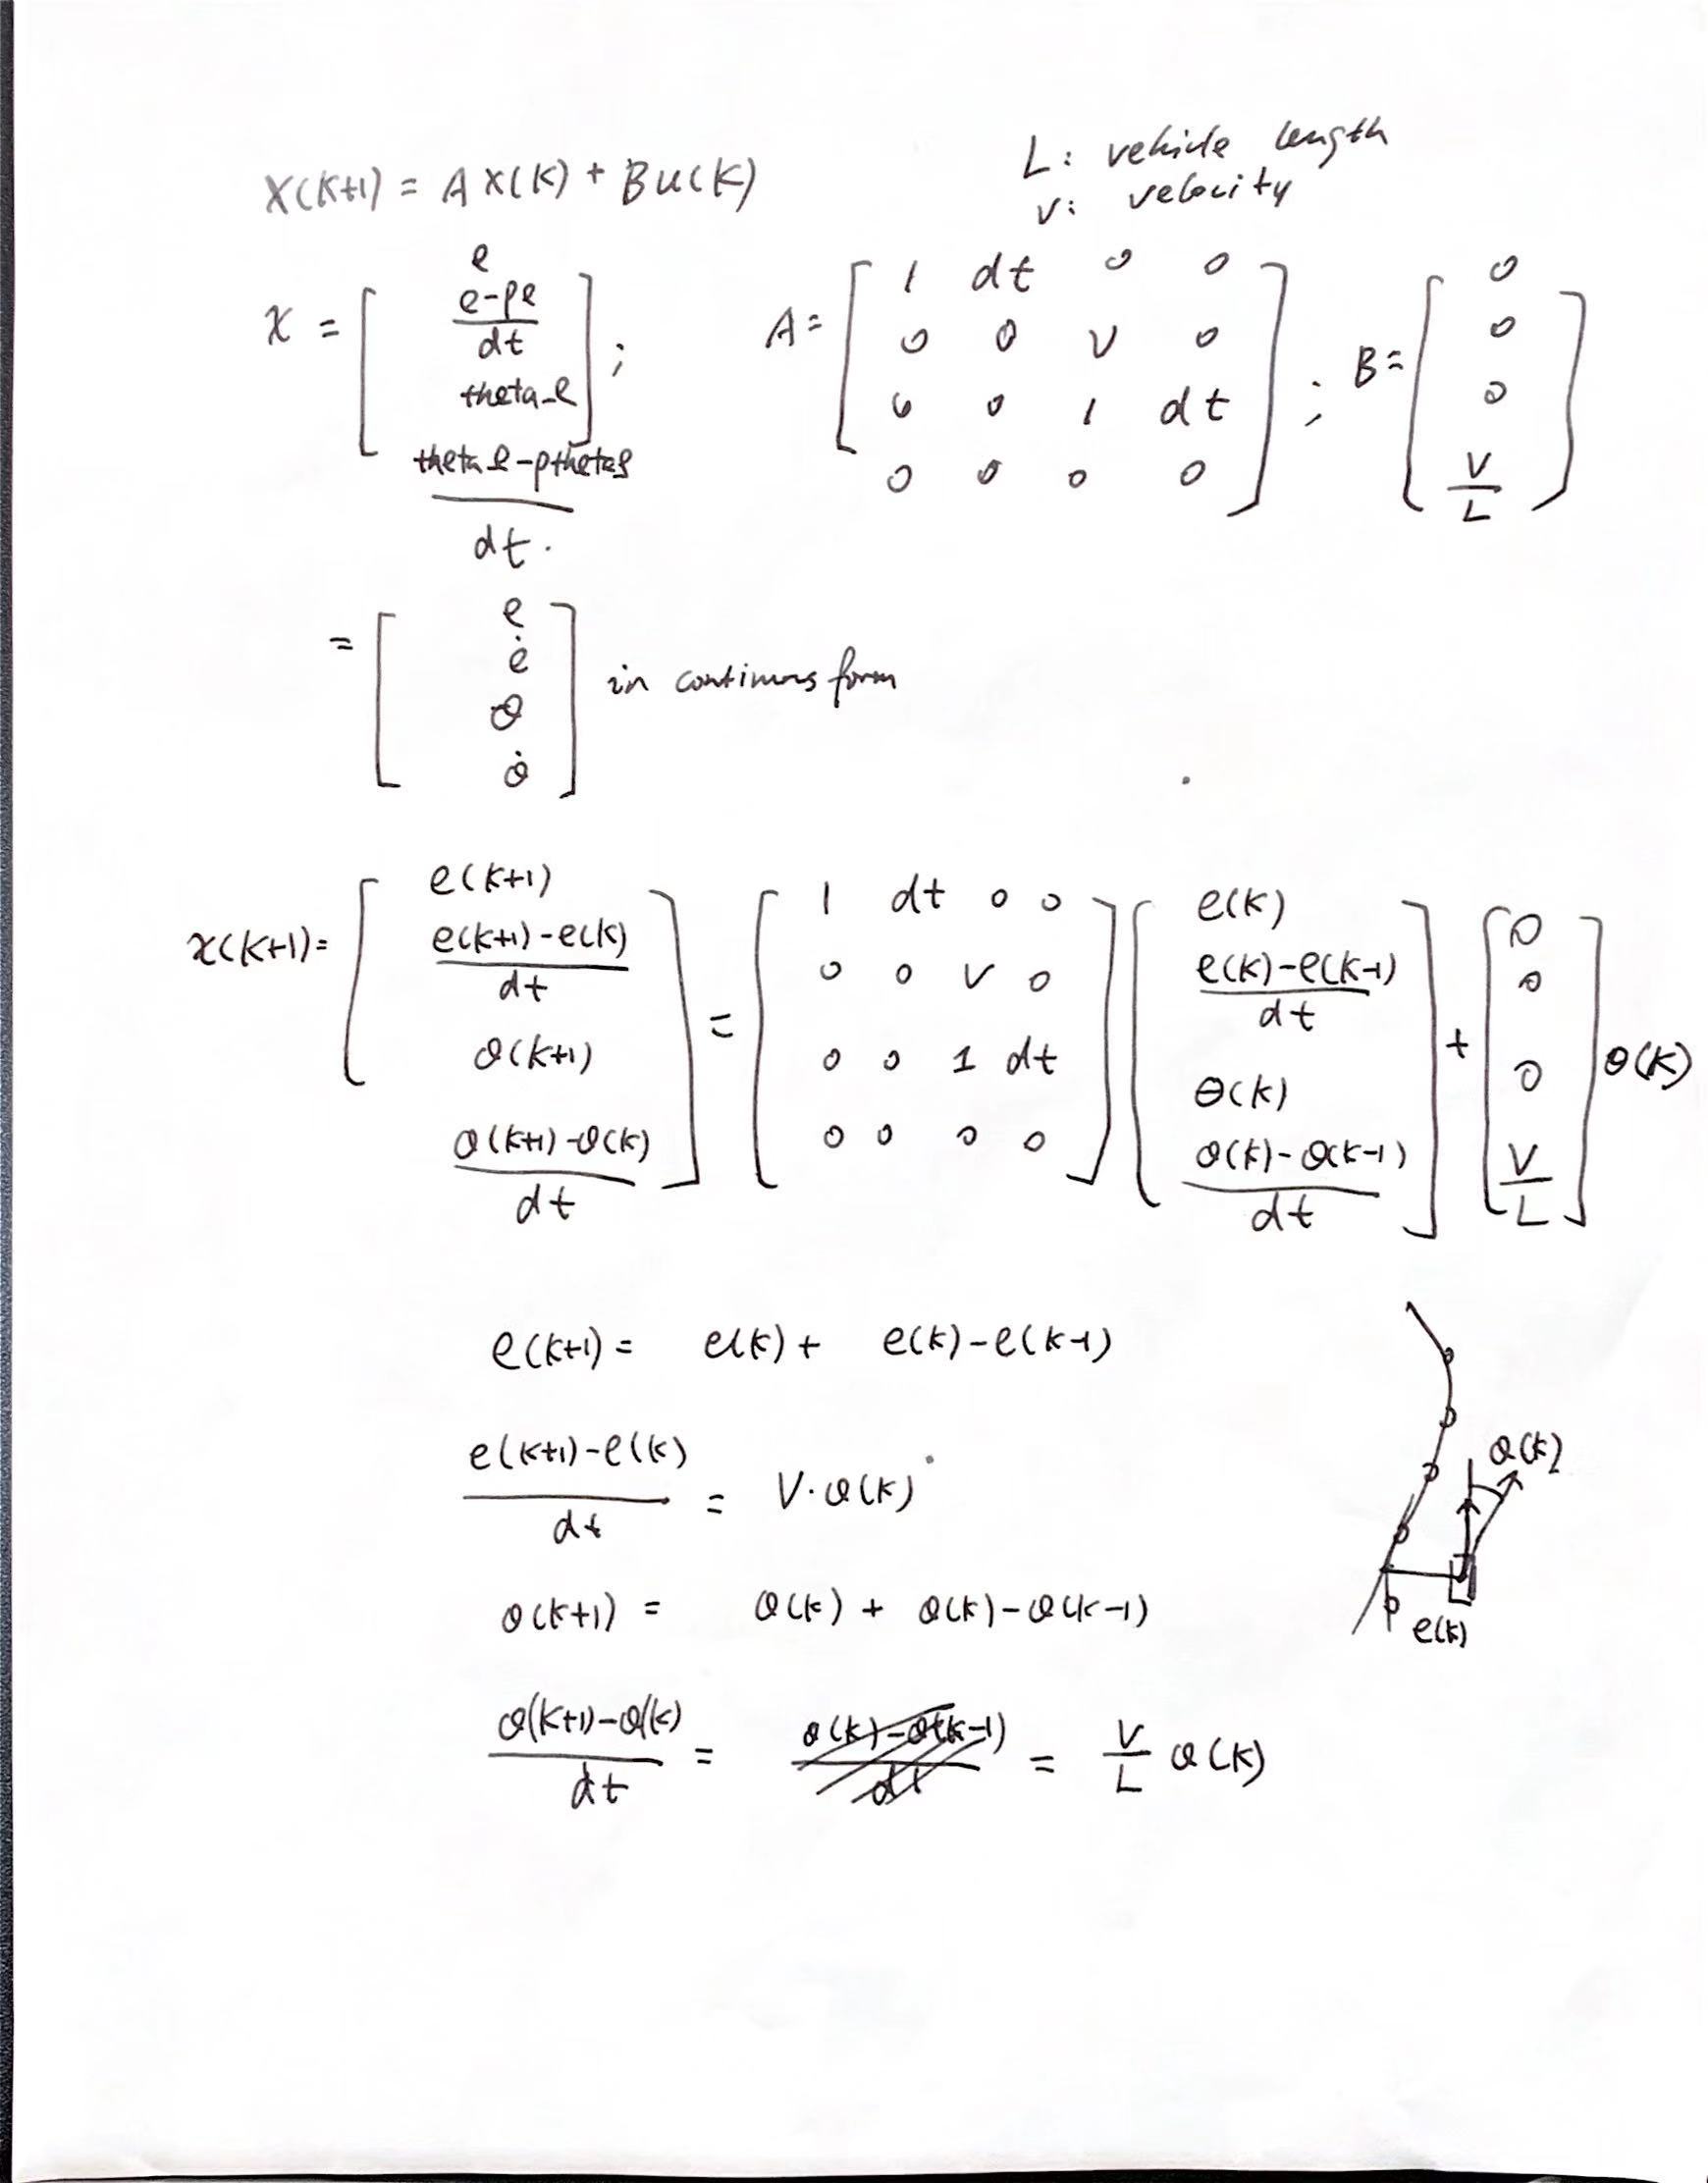 L: vehicle length
X(k+1) = A X(k) + B u(k)
v: velocity
x = [ e ; (e-pe)/dt ; theta_e ; (theta e-pthetae)/dt. ] ; A = [ 1 dt 0 0 ; 0 0 v 0 ; 0 0 1 dt ; 0 0 0 0 ] ; B = [ 0 ; 0 ; 0 ; v/L ]
= [ e ; ė ; θ ; θ̇ ] in continuous form
x(k+1) = [ e(k+1) ; (e(k+1)-e(k))/dt ; θ(k+1) ; (θ(k+1)-θ(k))/dt ] = [ 1 dt 0 0 ; 0 0 v 0 ; 0 0 1 dt ; 0 0 0 0 ] [ e(k) ; (e(k)-e(k-1))/dt ; θ(k) ; (θ(k)-θ(k-1))/dt ] + [ 0 ; 0 ; 0 ; v/L ] θ(k)
e(k+1) = e(k) + e(k)-e(k-1)
(e(k+1)-e(k))/dt = V·θ(k)
θ(k+1) = θ(k) + θ(k)-θ(k-1)
(θ(k+1)-θ(k))/dt = (θ(k)-θ(k-1))/dt = v/L θ(k)
θ(k)
e(k)